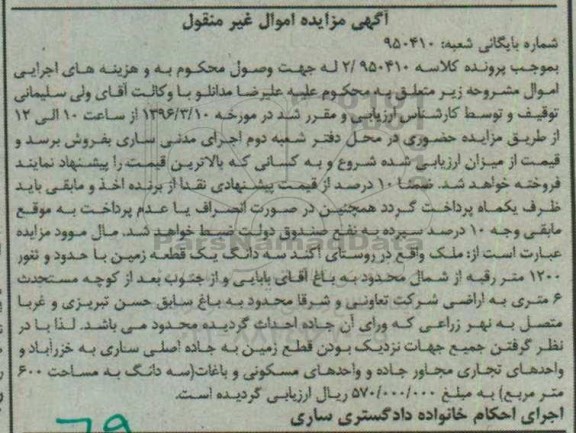 آگهی مزایده اموال غیر منقول
شماره بایگانی شعبه: ۹۵۰۴۱۰
بموجب پرونده کلاسه ۹۵۰۴۱۰ /۲ له جهت وصول محکوم به و هزینه های اجرایی
اموال مشروحه زیر متعلق به محکوم علیه علیرضا مدانلو با وکالت آقای ولی سلیمانی
توقیف و توسط کارشناس ارزیابی و مقرر شد در مورخه ۱۳۹۶/۳/۱۰ از ساعت ۱۰ الی ۱۲
از طریق مزایده حضوری در محل دفتر شعبه دوم اجرای مدنی ساری بفروش برسد و
قیمت از میزان ارزیابی شده شروع و به کسانی که بالاترین قیمت را پیشنهاد نمایند
فروخته خواهد شد. ضمنا ۱۰ درصد از قیمت پیشنهادی نقدا از برنده اخذ و مابقی باید
ظرف یکماه پرداخت گردد همچنین در صورت انصراف یا عدم پرداخت به موقع
مابقی وجه ۱۰ درصد سپرده به نفع صندوق دولت ضبط خواهد شد. مال مورد مزایده
ParsNamadData
عبارت است از: ملک واقع در روستای آکند سه دانگ یک قطعه زمین با حدود و ثغور
۱۲۰۰ متر رقبه از شمال محدود به باغ آقای بابایی و از جنوب بعد از کوچه مستحدث
۶ متری به اراضی شرکت تعاونی و شرقا محدود به باغ سابق حسن تبریزی و غربا
متصل به نهر زراعی که ورای آن جاده احداث گردیده محدود می باشد. لذا با در
نظر گرفتن جمیع جهات نزدیک بودن قطع زمین به جاده اصلی ساری به خزرآباد و
واحدهای تجاری مجاور جاده و واحدهای مسکونی و باغات(سه دانگ به مساحت ۶۰۰
متر مربع) به مبلغ ۵۷۰/۰۰۰/۰۰۰ ریال ارزیابی گردیده است.
اجرای احکام خانواده دادگستری ساری